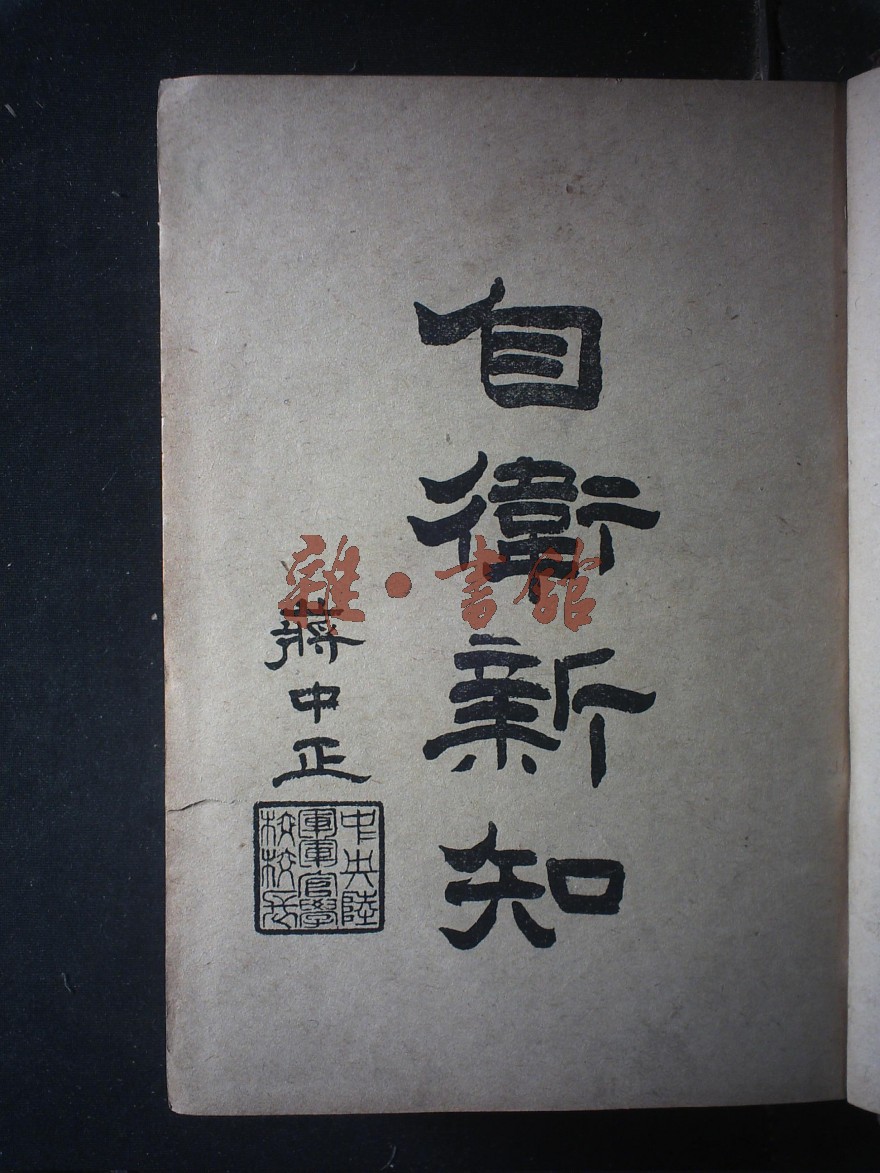 自衛新知
蔣中正
中央陸
軍軍官學
校校長
雜·書館